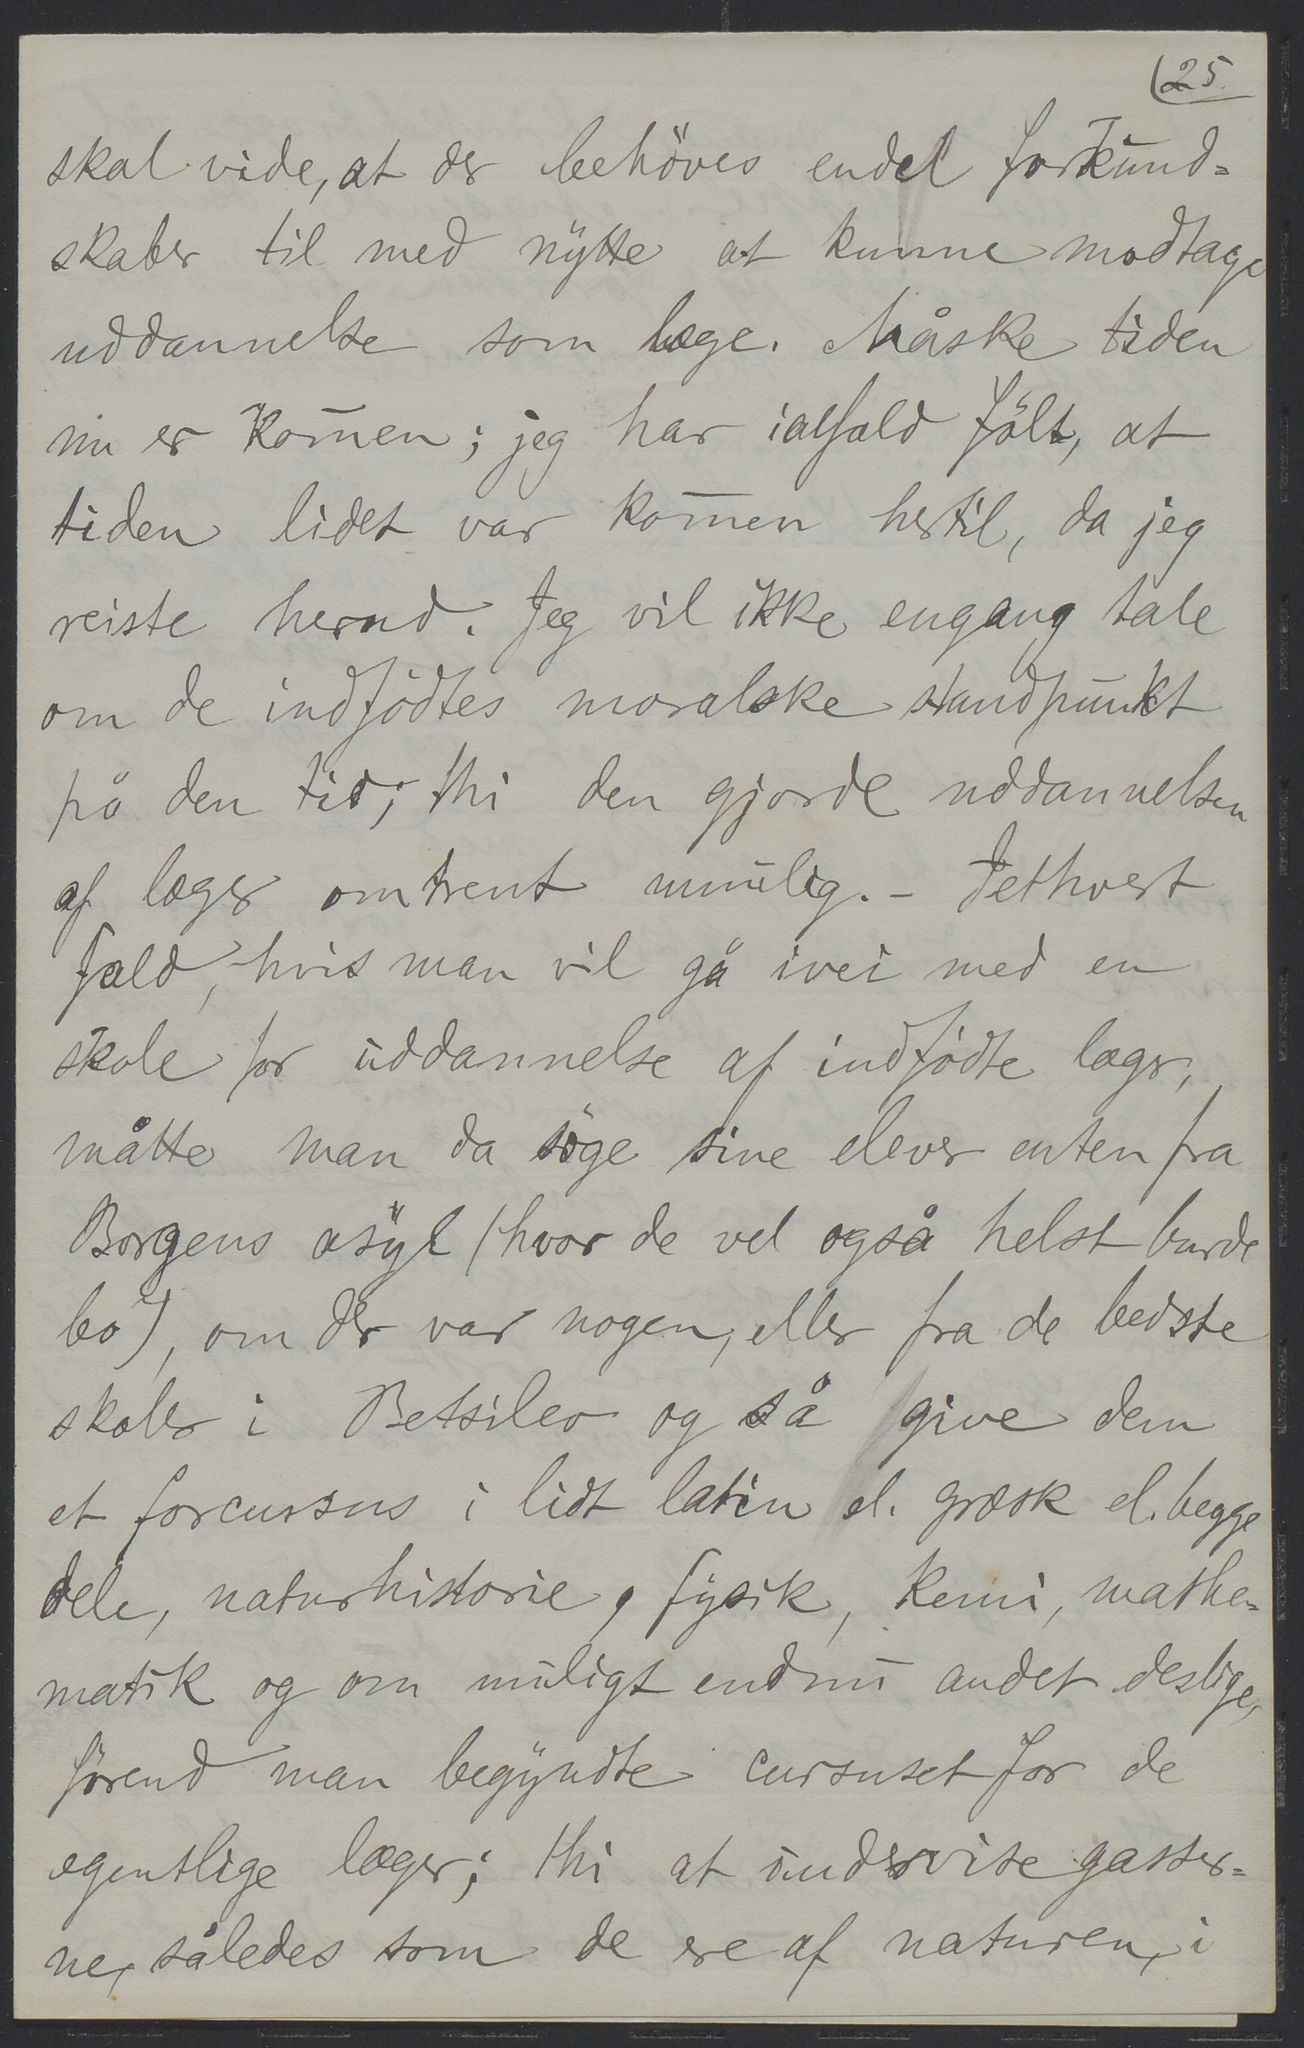 25.
skal vide, at der behöves endel forkund=
skaber til med nytte at kunne modtage
uddannelse som læge. Måske tiden
nu er kom̄en; jeg har ialfald fölt, at
tiden lidet var kom̄en hertil, da jeg
reiste herud. Jeg vil ikke engang tale
om de indfödtes moralske standpunkt
på den tid; thi den gjorde uddannelsen
af læger omtrent umulig. - Iethvert
fald, hvis man vil gå ivei med en
skole for uddannelse af indfödte læger,
måtte man da söge sine elever enten fra
Borgens asyl (hvor de vel også helst burde
bo), om der var nogen, eller fra de bedste
skoler i Betsileo og så give dem
et forcursus i lidt latin el. græsk el. begge
dele, naturhistorie, fysik, kemi, mathe=
matik og om muligt endnu andet deslige,
förend man begyndte cursuset for de
egentlige læger; thi at undervise gasser=
ne, således som de ere af naturen, i